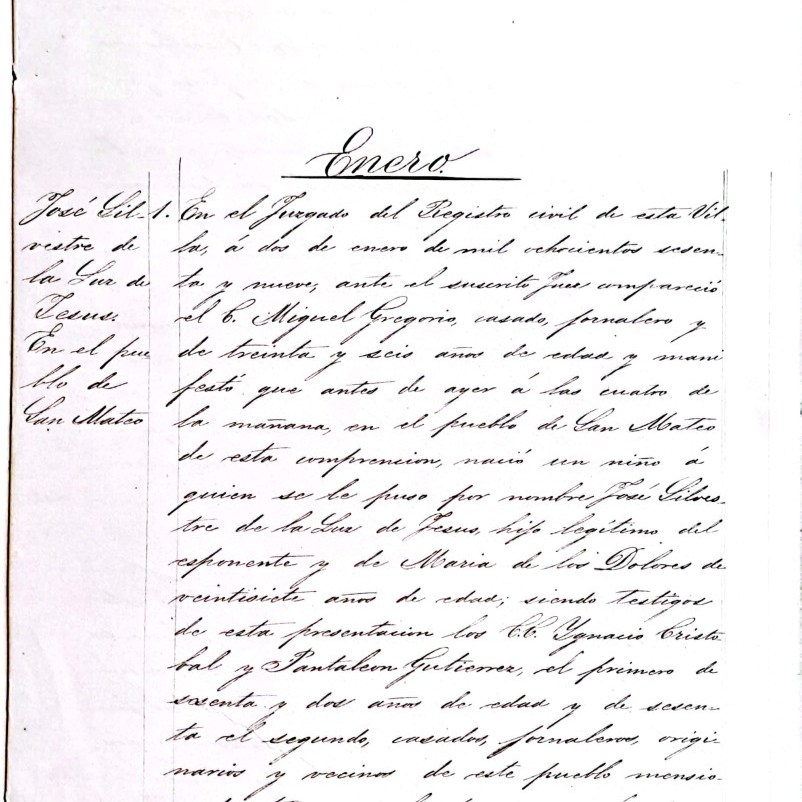 Enero.
José Sil-
vestre de
la Luz de
Jesus.
En el pue
blo de
San Mateo
1. En el Juzgado del Registro civil de esta Vil-
la, á dos de enero de mil ochocientos sesen-
ta y nueve, ante el suscrito Juez compareció
el C. Miguel Gregorio, casado, jornalero y
de treinta y seis años de edad y mani
festó que antes de ayer á las cuatro de
la mañana, en el pueblo de San Mateo
de esta comprencion, nació un niño á
quien se le puso por nombre José Silves-
tre de la Luz de Jesus, hijo legítimo del
esponente y de Maria de los Dolores de
veintisiete años de edad; siendo testigos
de esta presentacion los C.C. Ygnacio Cristo
bal y Pantaleon Gutierrez, el primero de
sesenta y dos años de edad y de sesen-
ta el segundo, casados, jornaleros, origi-
narios y vecinos de este pueblo mensio-